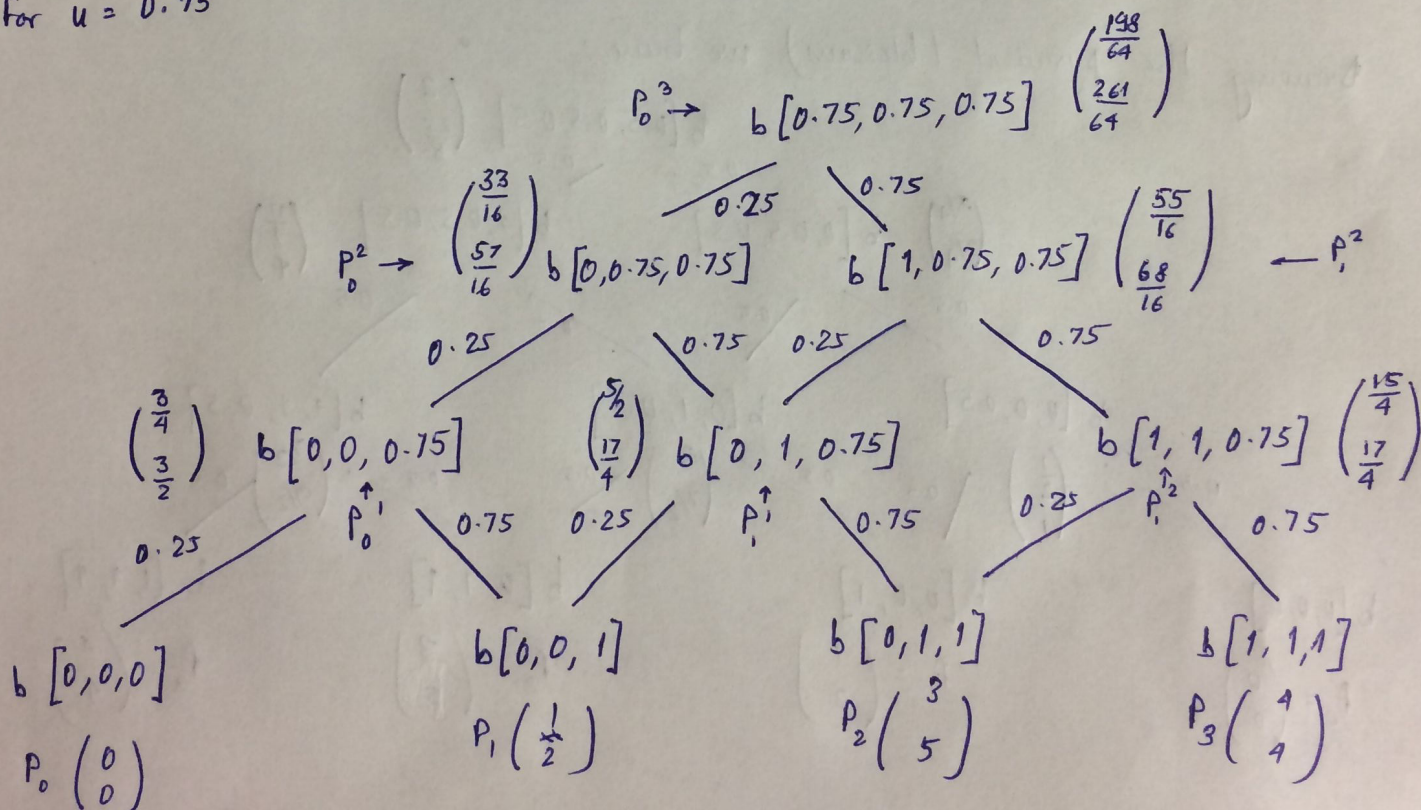 For u = 0.75
P₀³ → b [0.75, 0.75, 0.75] (198/64 261/64)
0.25 0.75
P₀² → (33/16 57/16) b [0, 0.75, 0.75] b [1, 0.75, 0.75] (55/16 68/16) ← P₁²
0.25 0.75 0.25 0.75
(3/4 3/2) b [0, 0, 0.75] (5/2 17/4) b [0, 1, 0.75] b [1, 1, 0.75] (15/4 17/4)
↑ ↑ ↑
P₀¹ P₁¹ P₁²
0.25 0.75 0.25 0.75 0.25 0.75
b [0, 0, 0] b [0, 0, 1] b [0, 1, 1] b [1, 1, 1]
P₀ (0 0) P₁ (1 2) P₂ (3 5) P₃ (4 4)